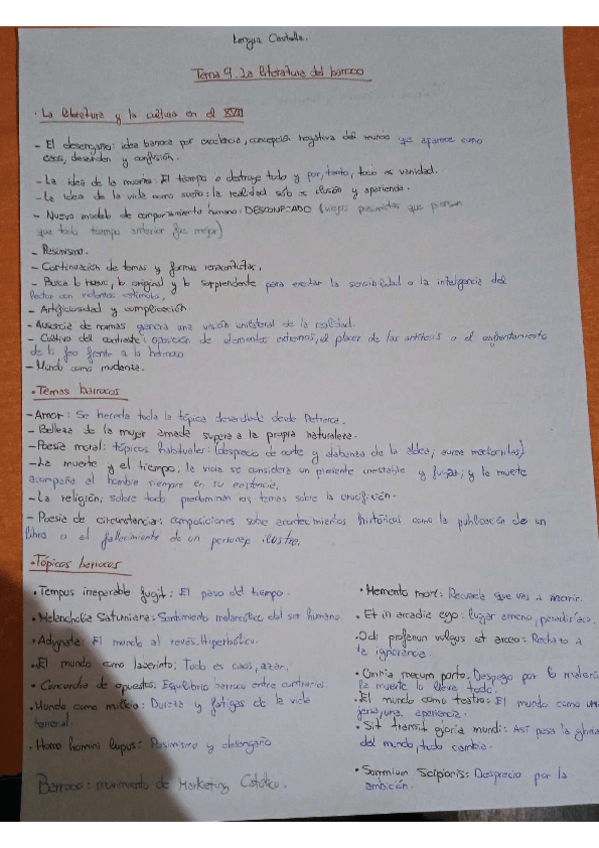 Lengua Castella.
Tema 9. La literatura del barroco
· La literatura y la cultura en el XVII
- El desengaño: idea barroca por excelencia, concepción negativa del mundo que aparece como
caos, desorden y confusión.
- La idea de la muerte: El tiempo o destruye todo y por, tanto, todo es vanidad.
- La idea de la vida como sueño: la realidad sólo es ilusión y apariencia.
- Nuevo modelo de comportamiento humano: DESCONFIADO (viejos pesimistas que piensan
que todo tiempo anterior fue mejor)
- Pesimismo.
- Continuación de temas y formas renacentistas.
- Busca lo nuevo, lo original y lo sorprendente para excitar la sensibilidad o la inteligencia del
lector con violentos estímulos.
- Artificiosidad y complicación.
- Ausencia de normas genera una visión unilateral de la realidad.
- Cultivo del contraste: oposición de elementos extremos, el placer de las antítesis o el enfrentamiento
de lo feo frente a lo hermoso
- Mundo como mudanza.
· Temas barrocos
- Amor: Se hereda toda la tópica desarrollada desde Petrarca.
- Belleza de la mujer amada supera a la propia naturaleza.
- Poesía moral: tópicos habituales: (desprecio de corte y alabanza de la aldea, aurea mediocritas)
- La muerte y el tiempo, la vida se considera un presente inestable y fugaz; y la muerte
acompaña al hombre siempre en su existencia.
- La religión; sobre todo predominan los temas sobre la crucifixión.
- Poesía de circunstancia: composiciones sobre acontecimientos históricos como la publicación de un
libro o el fallecimiento de un personaje ilustre.
· Tópicos barrocos
· Tempus irreperable fugit: El paso del tiempo.
· Melancholia Saturniana: Sentimiento melancólico del ser humano.
· Adynata: El mundo al revés. Hiperbólico.
· El mundo como laberinto: Todo es caos, azar.
· Concordia de opuestos: Equilibrio barroco entre contrarios.
· Mundo como milicia: Dureza y fatigas de la vida
terrenal.
· Homo homini lupus: Pesimismo y desengaño
Barroco: movimiento de Marketing Católico.
· Memento mori: Recuerda que vas a morir.
· Et in arcadia ego: lugar ameno, paradisíaco.
· Odi profanun vulgus et arceo: Rechazo a
la ignorancia.
· Omnia mecum porto, Despego por lo material
la muerte lo lleva todo.
· El mundo como teatro: El mundo como una
una apariencia.
· Sit transit gloria mundi: Así pasa la gloria
del mundo, todo cambia.
· Sommium Scipionis: Desprecio por la
ambición.